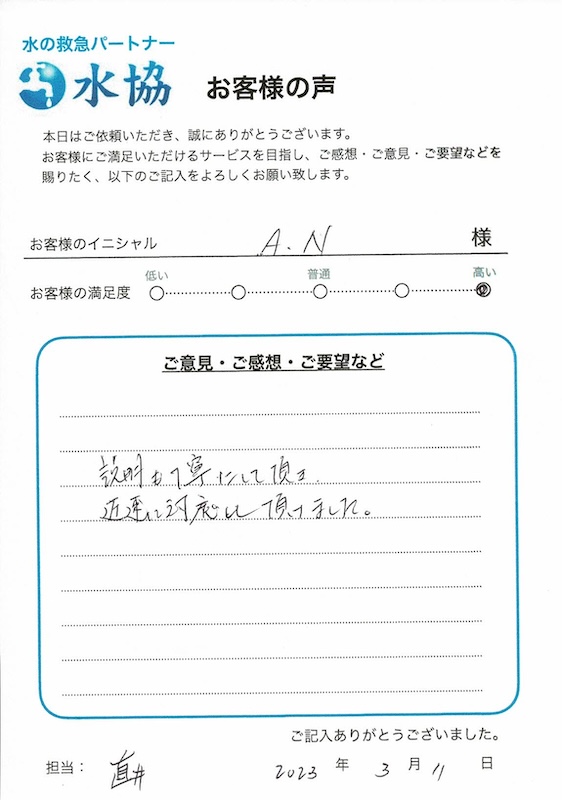 水の救急パートナー
水協
お客様の声
本日はご依頼いただき、誠にありがとうございます。
お客様にご満足いただけるサービスを目指し、ご感想・ご意見・ご要望などを
賜りたく、以下のご記入をよろしくお願い致します。
お客様のイニシャル A.N 様
低い 普通 高い
お客様の満足度
ご意見・ご感想・ご要望など
説明も丁寧にして頂き
迅速に対応して頂けました。
ご記入ありがとうございました。
担当: 直井 2023 年 3 月 11 日